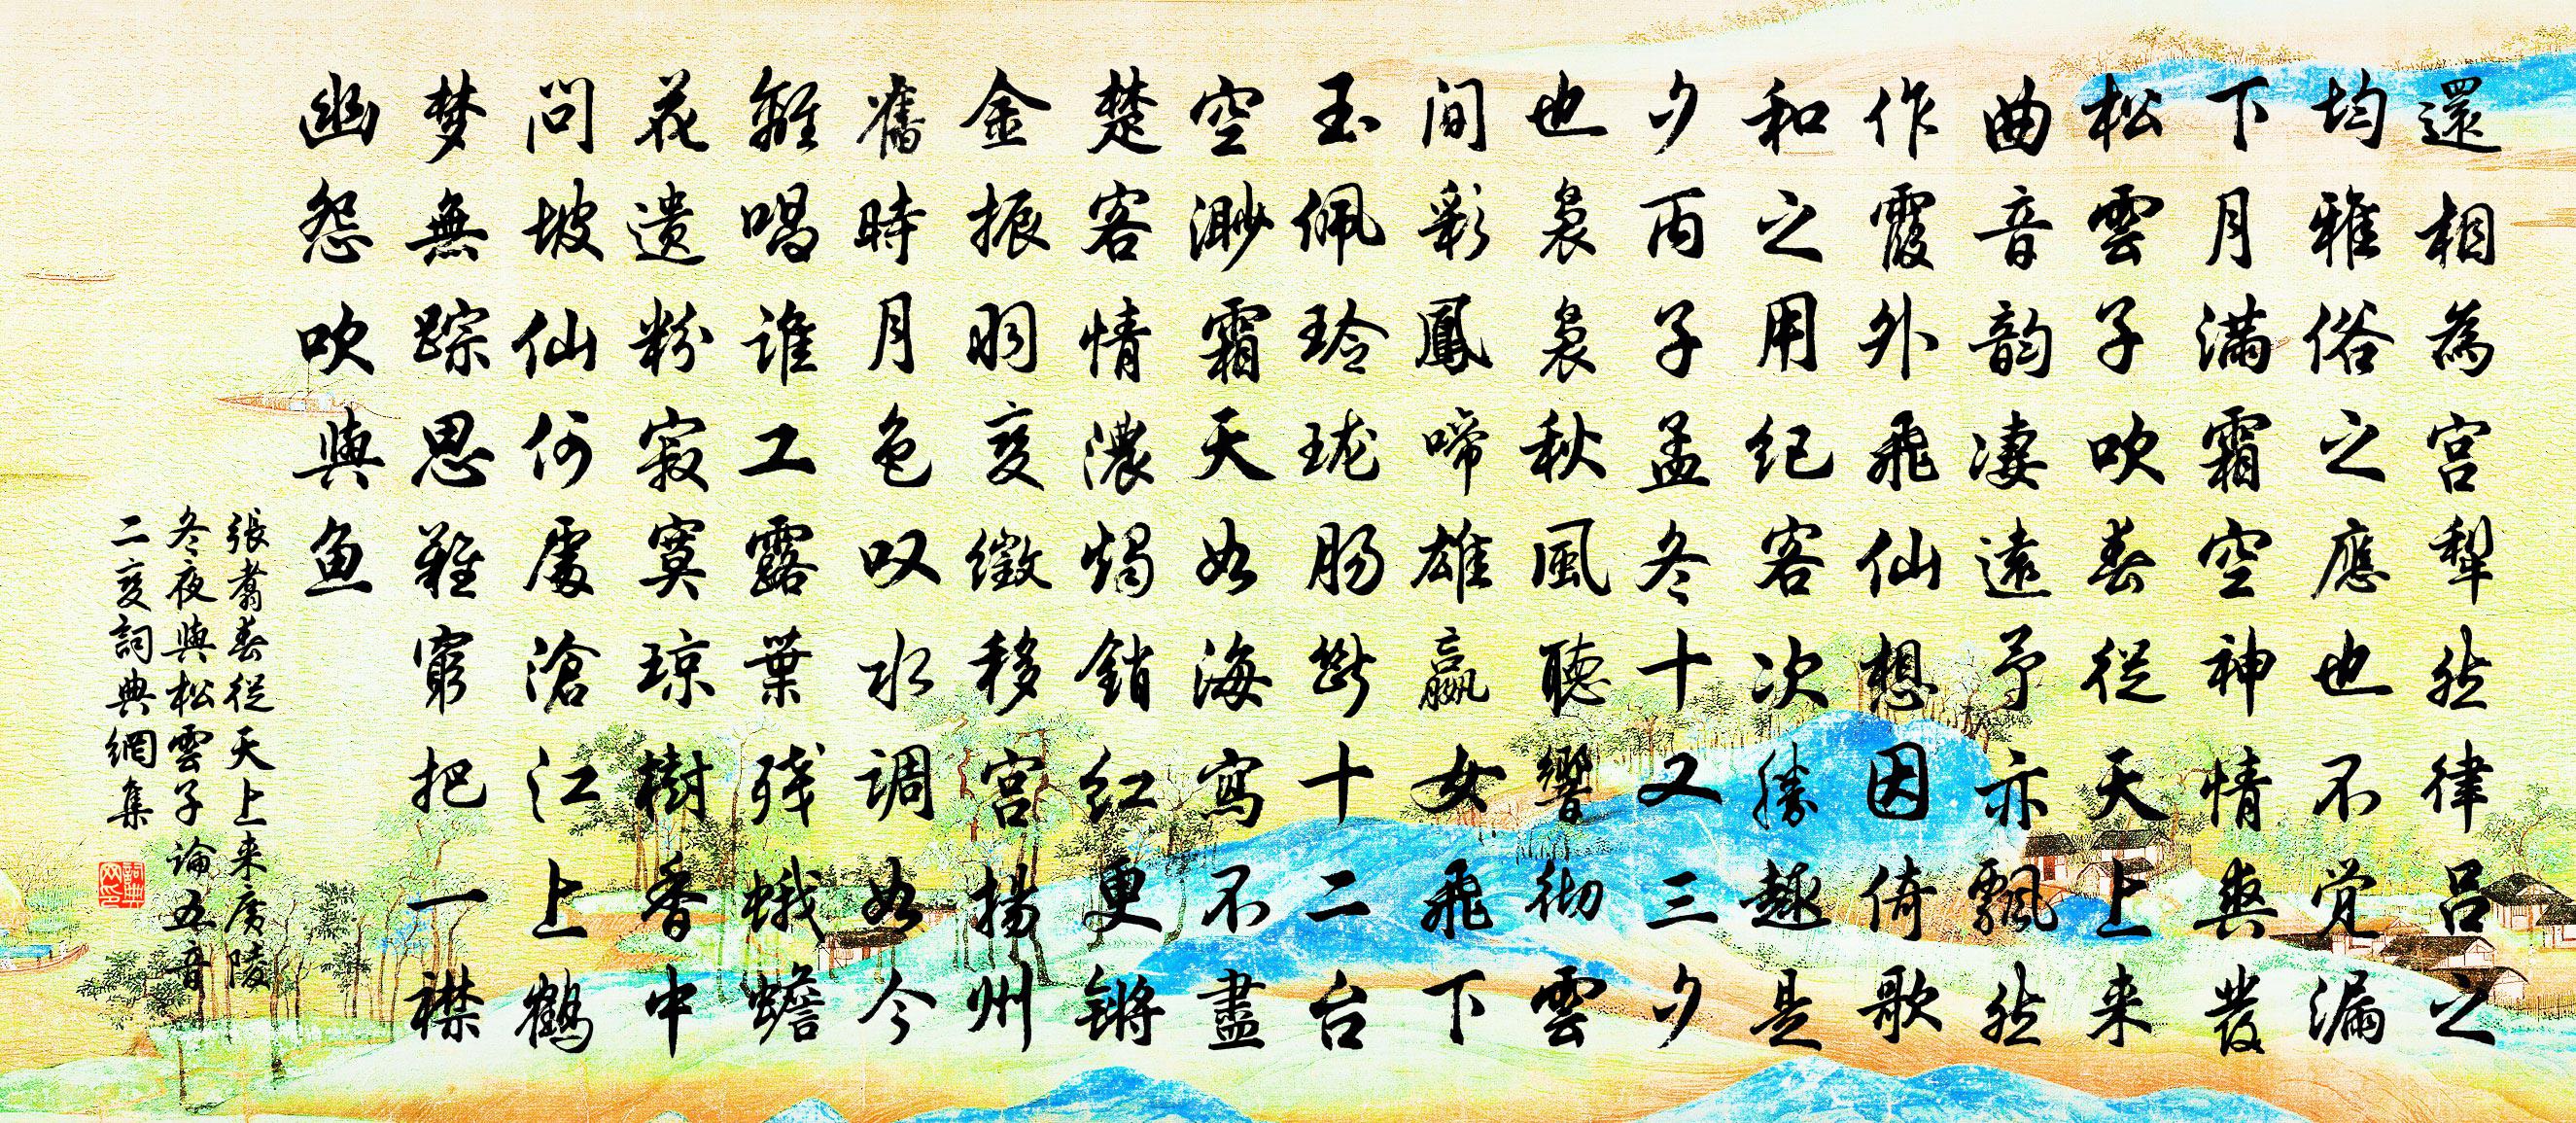 還相為宮犁然律呂之
均雅俗之應也不觉漏
下月满霜空神情爽發
松雲子吹春從天上来
曲音韵凄遠予亦飄然
作霞外飛仙想因倚歌
和之用纪客次勝趣是
夕丙子孟冬十又三夕
也袅袅秋風聽響彻雲
间彩鳳啼雄嬴女飛下
玉佩玲珑肠断十二台
空渺霜天如海寫不盡
楚客情濃燭銷红更锵
金振羽变徵移宮揚州
舊時月色叹水调如今
離唱谁工露葉残蛾蟾
花遗粉寂寞琼樹香中
问坡仙何處滄江上鶴
梦無踪思難窮把一襟
幽怨吹與鱼
張翥春從天上来廣陵
冬夜與松雲子論五音
二变詞典網集